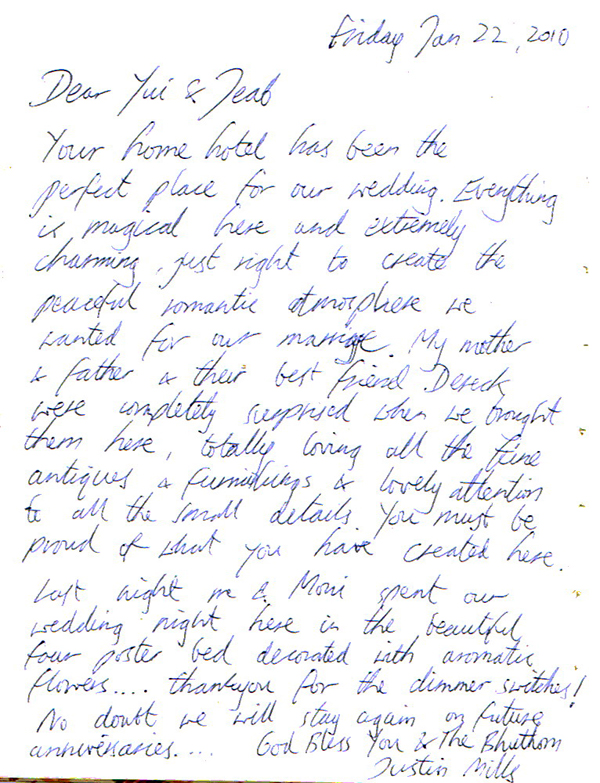 Friday Jan 22, 2010
Dear Yui & Jeab
Your home hotel has been the
perfect place for our wedding. Everything
is magical here and extremely
charming, just right to create the
peaceful romantic atmosphere we
wanted for our marriage. My mother
& father & their best friend Dereck
were completely surprised when we brought
them here, totally loving all the fine
antiques & furnishings & lovely attention
to all the small details. You must be
proud of what you have created here.
Last night me & Moni spent our
wedding night here in the beautiful
four poster bed decorated with aromatic
flowers.... thankyou for the dimmer switches!
No doubt we will stay again on future
anniversaries.... God Bless You & The Bhuthorn
Justin Mills